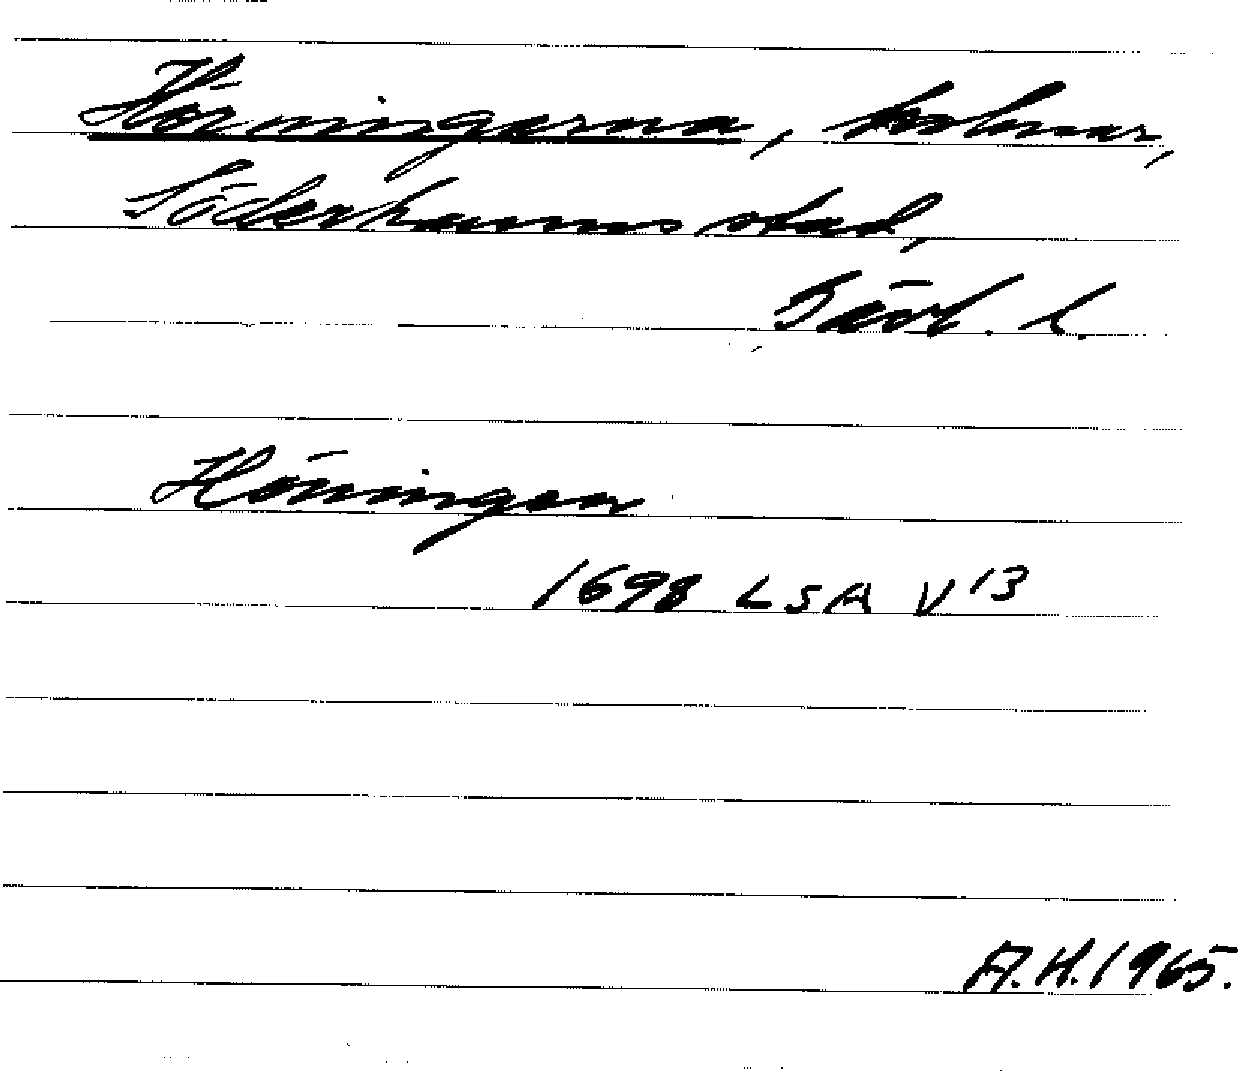 Hörningarna, holmar,
Söderhamns stad,
Gävl. l.
Höningen
1698 LSA V 13
A.H. 1965.